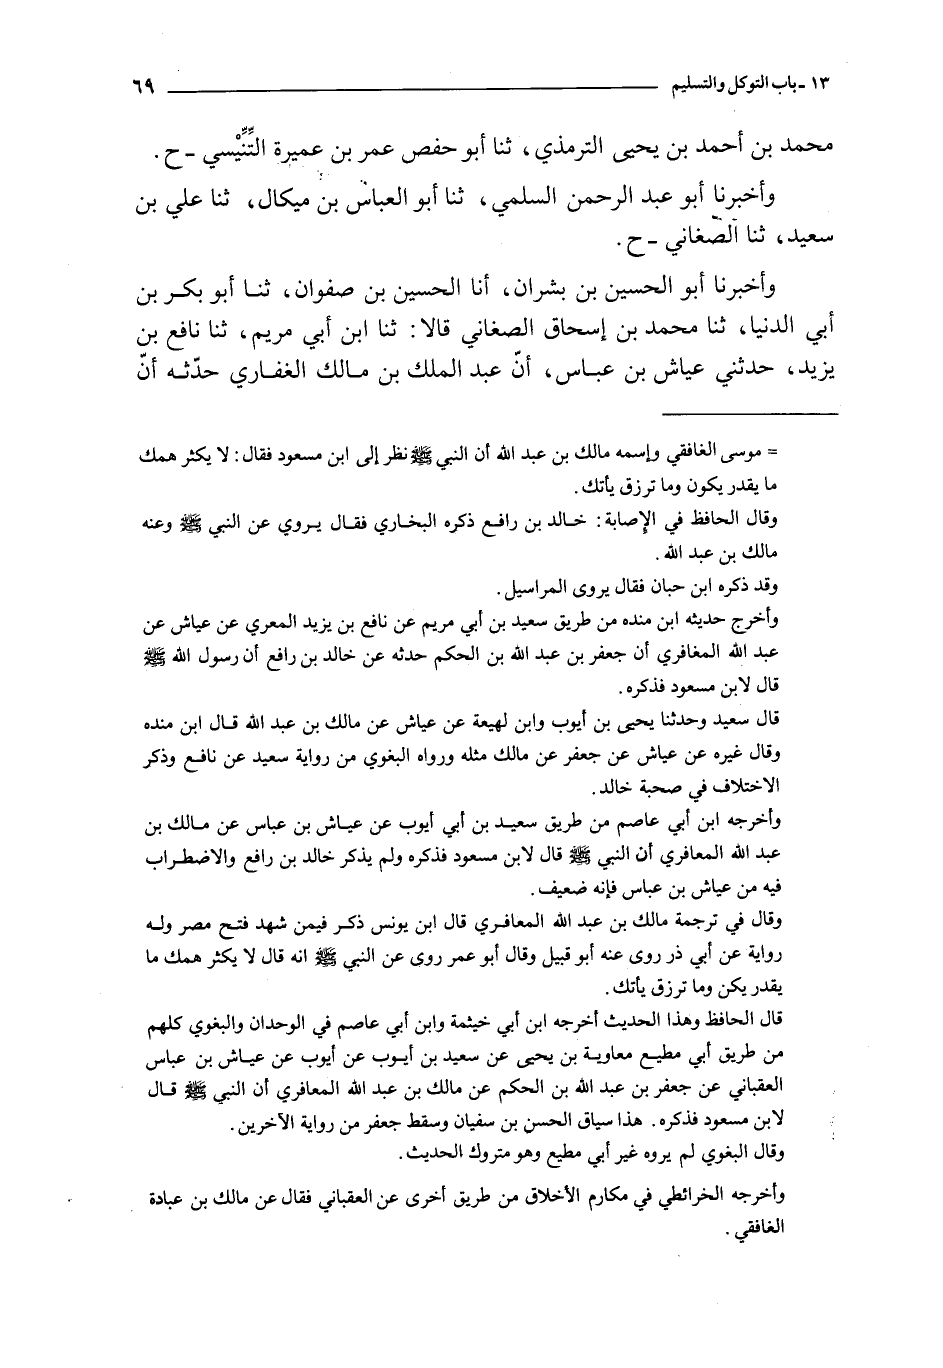 ١٣ - باب التوكل والتسليم ٦٩
محمد بن أحمد بن يحيى الترمذي، ثنا أبو حفص عمر بن عميرة التِّنِّيْسي - ح.
وأخبرنا أبو عبد الرحمن السلمي، ثنا أبو العباس بن ميكال، ثنا علي بن
سعيد، ثنا الصّغاني - ح.
وأخبرنا أبو الحسين بن بشران، أنا الحسين بن صفوان، ثنا أبو بكر بن
أبي الدنيا، ثنا محمد بن إسحاق الصغاني قالا: ثنا ابن أبي مريم، ثنا نافع بن
يزيد، حدثني عياش بن عباس، أنّ عبد الملك بن مالك الغفاري حدّثه أنّ
= موسى الغافقي وإسمه مالك بن عبد الله أن النبي ﷺ نظر إلى ابن مسعود فقال: لا يكثر همك
ما يقدر يكون وما ترزق يأتك.
وقال الحافظ في الإصابة: خالد بن رافع ذكره البخاري فقال يروي عن النبي ﷺ وعنه
مالك بن عبد الله.
وقد ذكره ابن حبان فقال يروى المراسيل.
وأخرج حديثه ابن منده من طريق سعيد بن أبي مريم عن نافع بن يزيد المعري عن عياش عن
عبد الله المغافري أن جعفر بن عبد الله بن الحكم حدثه عن خالد بن رافع أن رسول الله ﷺ
قال لابن مسعود فذكره.
قال سعيد وحدثنا يحيى بن أيوب وابن لهيعة عن عياش عن مالك بن عبد الله قال ابن منده
وقال غيره عن عياش عن جعفر عن مالك مثله ورواه البغوي من رواية سعيد عن نافع وذكر
الاختلاف في صحبة خالد.
وأخرجه ابن أبي عاصم من طريق سعيد بن أبي أيوب عن عياش بن عباس عن مالك بن
عبد الله المعافري أن النبي ﷺ قال لابن مسعود فذكره ولم يذكر خالد بن رافع والاضطراب
فيه من عياش بن عباس فإنه ضعيف.
وقال في ترجمة مالك بن عبد الله المعافري قال ابن يونس ذكر فيمن شهد فتح مصر وله
رواية عن أبي ذر روى عنه أبو قبيل وقال أبو عمر روى عن النبي ﷺ انه قال لا يكثر همك ما
يقدر يكن وما ترزق يأتك.
قال الحافظ وهذا الحديث أخرجه ابن أبي خيثمة وابن أبي عاصم في الوحدان والبغوي كلهم
من طريق أبي مطيع معاوية بن يحيى عن سعيد بن أيوب عن أيوب عن عياش بن عباس
العقباني عن جعفر بن عبد الله بن الحكم عن مالك بن عبد الله المعافري أن النبي ﷺ قال
لابن مسعود فذكره. هذا سياق الحسن بن سفيان وسقط جعفر من رواية الآخرين.
وقال البغوي لم يروه غير أبي مطيع وهو متروك الحديث.
وأخرجه الخرائطي في مكارم الأخلاق من طريق أخرى عن العقباني فقال عن مالك بن عبادة
الغافقي.